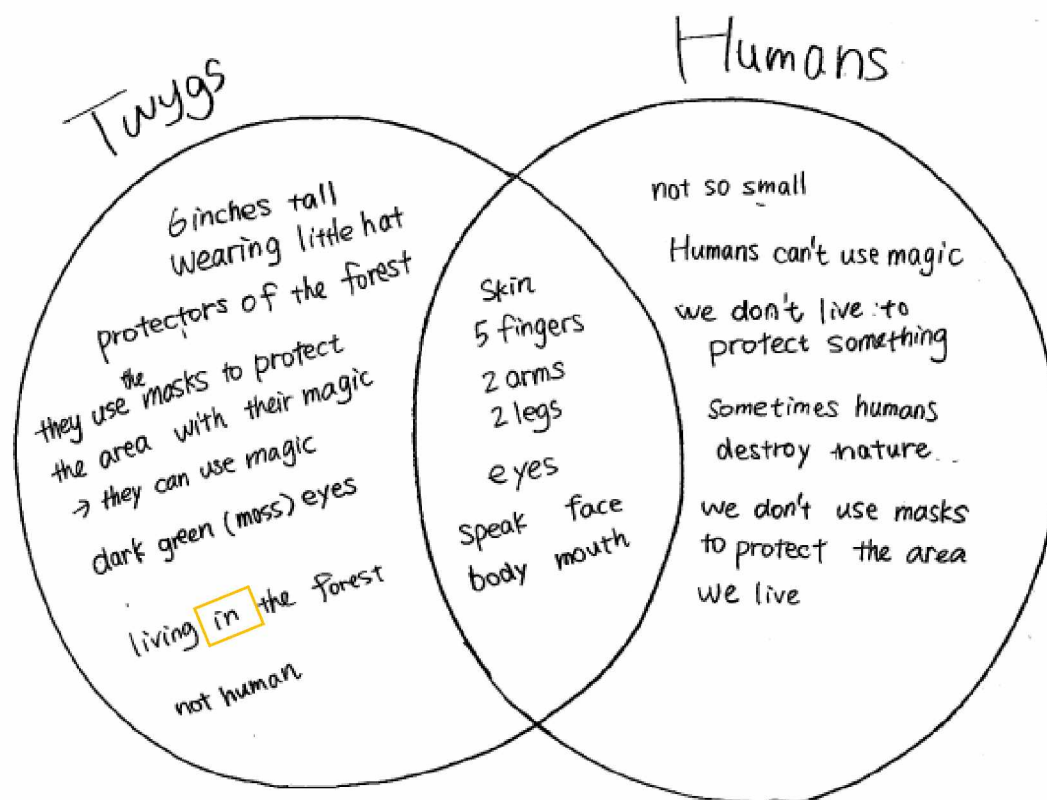 Twygs
6 inches tall
wearing little hat
protectors of the forest
the
they use masks to protect
the area with their magic
→ they can use magic
dark green (moss) eyes
living in the forest
not human
Skin
5 fingers
2 arms
2 legs
eyes
speak face
body mouth
Humans
not so small
Humans can't use magic
we don't live to
protect something
Sometimes humans
destroy nature..
we don't use masks
to protect the area
we live